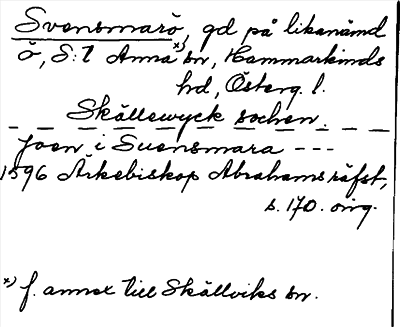 Svensmarö, gd på likanämd
ö, S:t Anna x) sn, Hammarkinds
hd, Österg. l.
Skällewyck sochen.
Joen i Suensmara ---
1596 Ärkebiskop Abrahams räfst,
s. 170. orig.
x) f. annex till Skällviks sn.